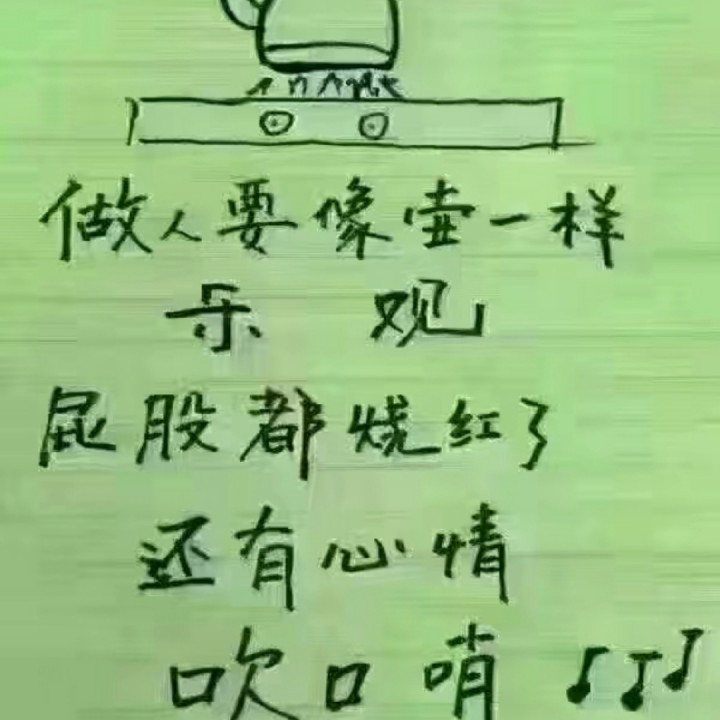 做人要像壶一样
乐观
屁股都烧红了
还有心情
吹口哨♪♪♪